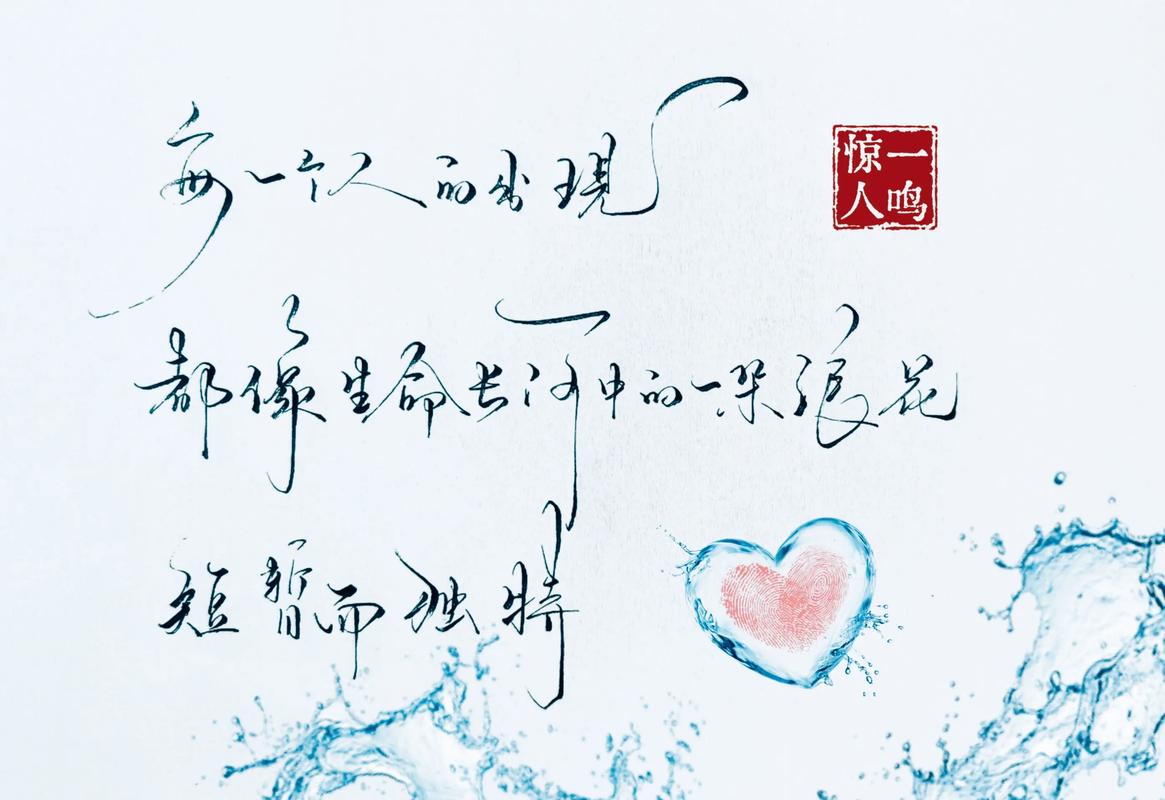 每一个人的出現
都像生命长河中的一朵浪花
短暂而独特
一鸣惊人